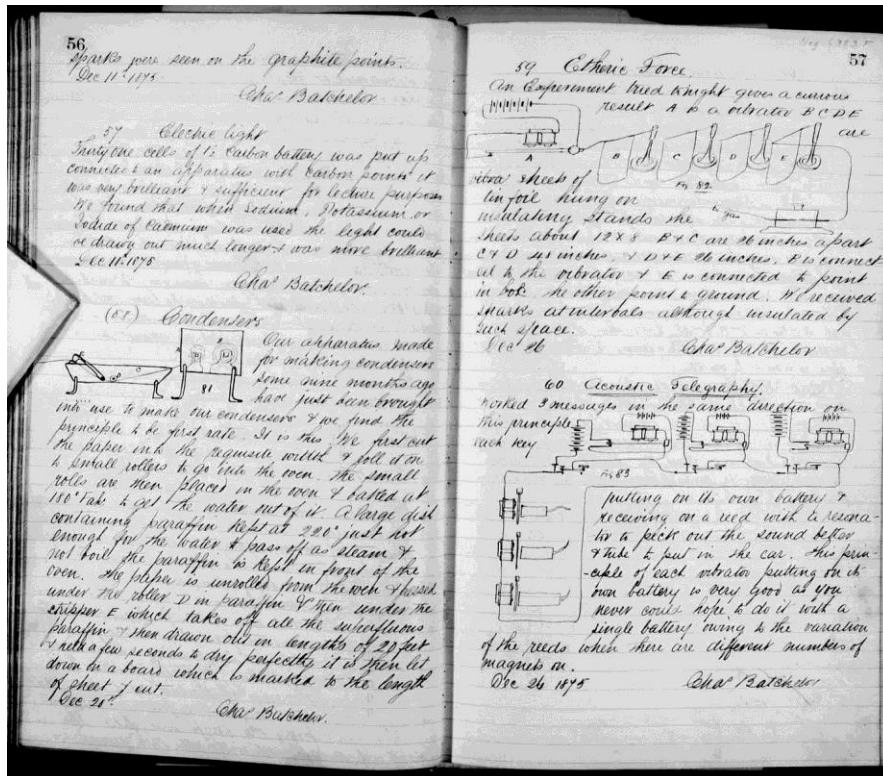 56
sparks were seen on the graphite points.
Dec 11th 1875
Chas Batchelor
57 Electric light
Thirty one cells of 1/2 Carbon battery was put up
connected to an apparatus with Carbon points it
was very brilliant & sufficient for lecture purposes
We found that when Sodium, Potassium or
Iodide of Cadmium was used the light could
be drawn out much longer & was more brilliant
Dec 11th 1875
Chas Batchelor.
(58) Condensers
81
Our apparatus made
for making condensers
some nine months ago
had just been brought
into use to make our condensers & we find the
principle to be first rate. It is this We first cut
the paper into the requisite width & roll it on
to small rollers to go into the oven. The small
rolls are then placed in the oven & baked at
180° Fah to get the water out of it. A large dish
containing paraffin kept at 220° just hot
enough for the water to pass off as steam &
not boil the paraffin is kept in front of the
oven. The paper is unrolled from the oven & passed
under the roller D in paraffin & then under the
stripper E which takes off all the superfluous
paraffin & then drawn out in lengths of 22 feet
& needs a few seconds to dry perfectly it is then let
down on a board which is marked to the length
of sheet & cut.
Dec 21st.
Chas Batchelor.
57
59 Etheric Force.
An Experiment tried tonight gives a curious
result A is a vibrator B C D E
are
A B C D E
Fig 82
to gas
sheets of
tin foil hung on
insulating stands the
sheets about 12 X 8 B & C are 26 inches apart
C & D 48 inches, & D & E 26 inches. B is connect
ed to the vibrator & E is connected to point
in box the other point to ground. We received
sparks at intervals although insulated by
such space.
Dec 26
Chas Batchelor
60 Acoustic Telegraphy.
Worked 3 messages in the same direction on
this principle
each key
Fig 83
putting on its own battery &
receiving on a reed with a resona-
tor to pick out the sound better
& tube to put in the ear. This prin-
-ciple of each vibrator putting on its
own battery is very good as you
never could hope to do it with a
single battery owing to the variation
of the reeds when there are different numbers of
magnets on.
Dec 26 1875
Chas Batchelor